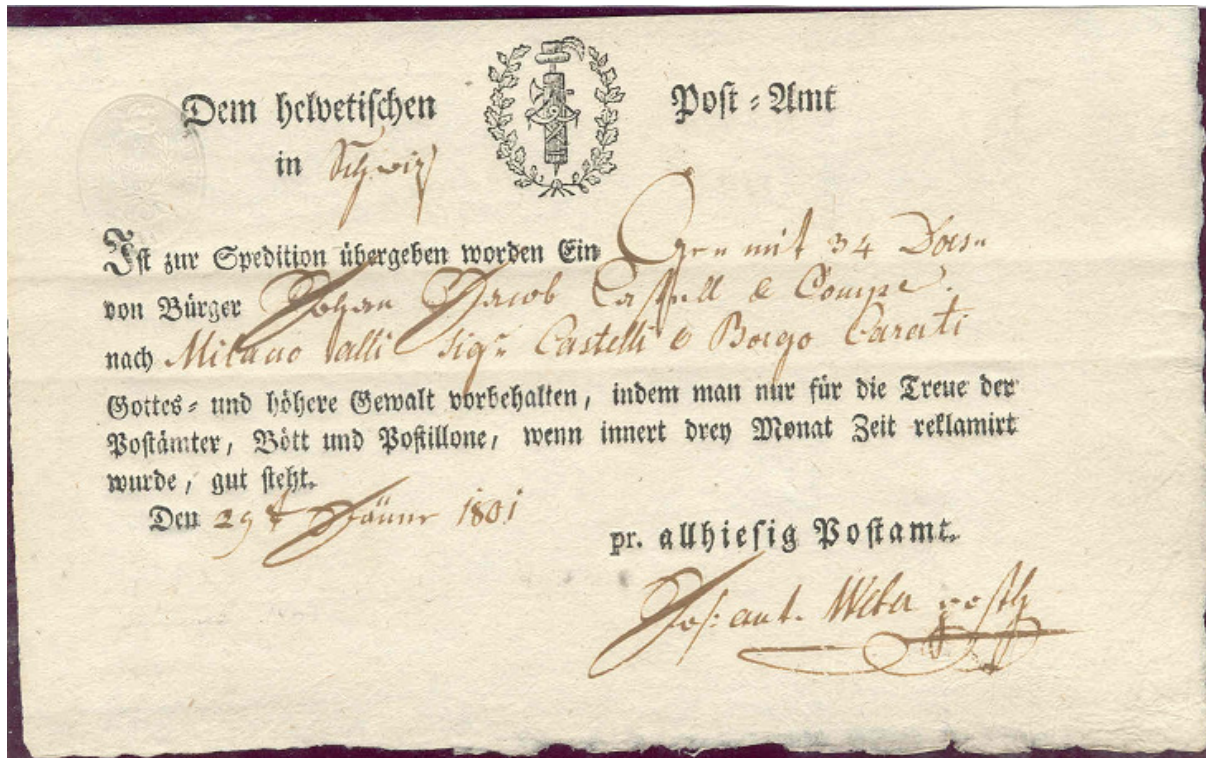 Dem helvetischen Post-Amt
in Schwiz
Ist zur Spedition übergeben worden Ein mit 34
von Bürger Johan Jacob & Compe.
nach Milano alli Sigr. Castelli e Borgo Carati
Gottes- und höhere Gewalt vorbehalten, indem man nur für die Treue der
Postämter, Bött und Postillone, wenn innert drey Monat Zeit reklamirt
wurde, gut steht.
Den 29t Jänner 1801
pr. allhiesig Postamt.
Jos: ant. Weber